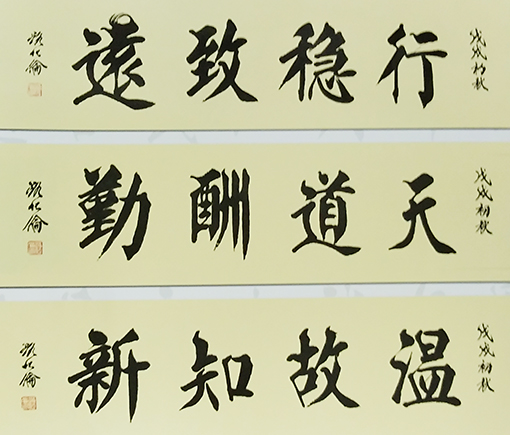 戊戌初秋
行稳致遠
戊戌初秋
天道酬勤
戊戌初秋
温故知新